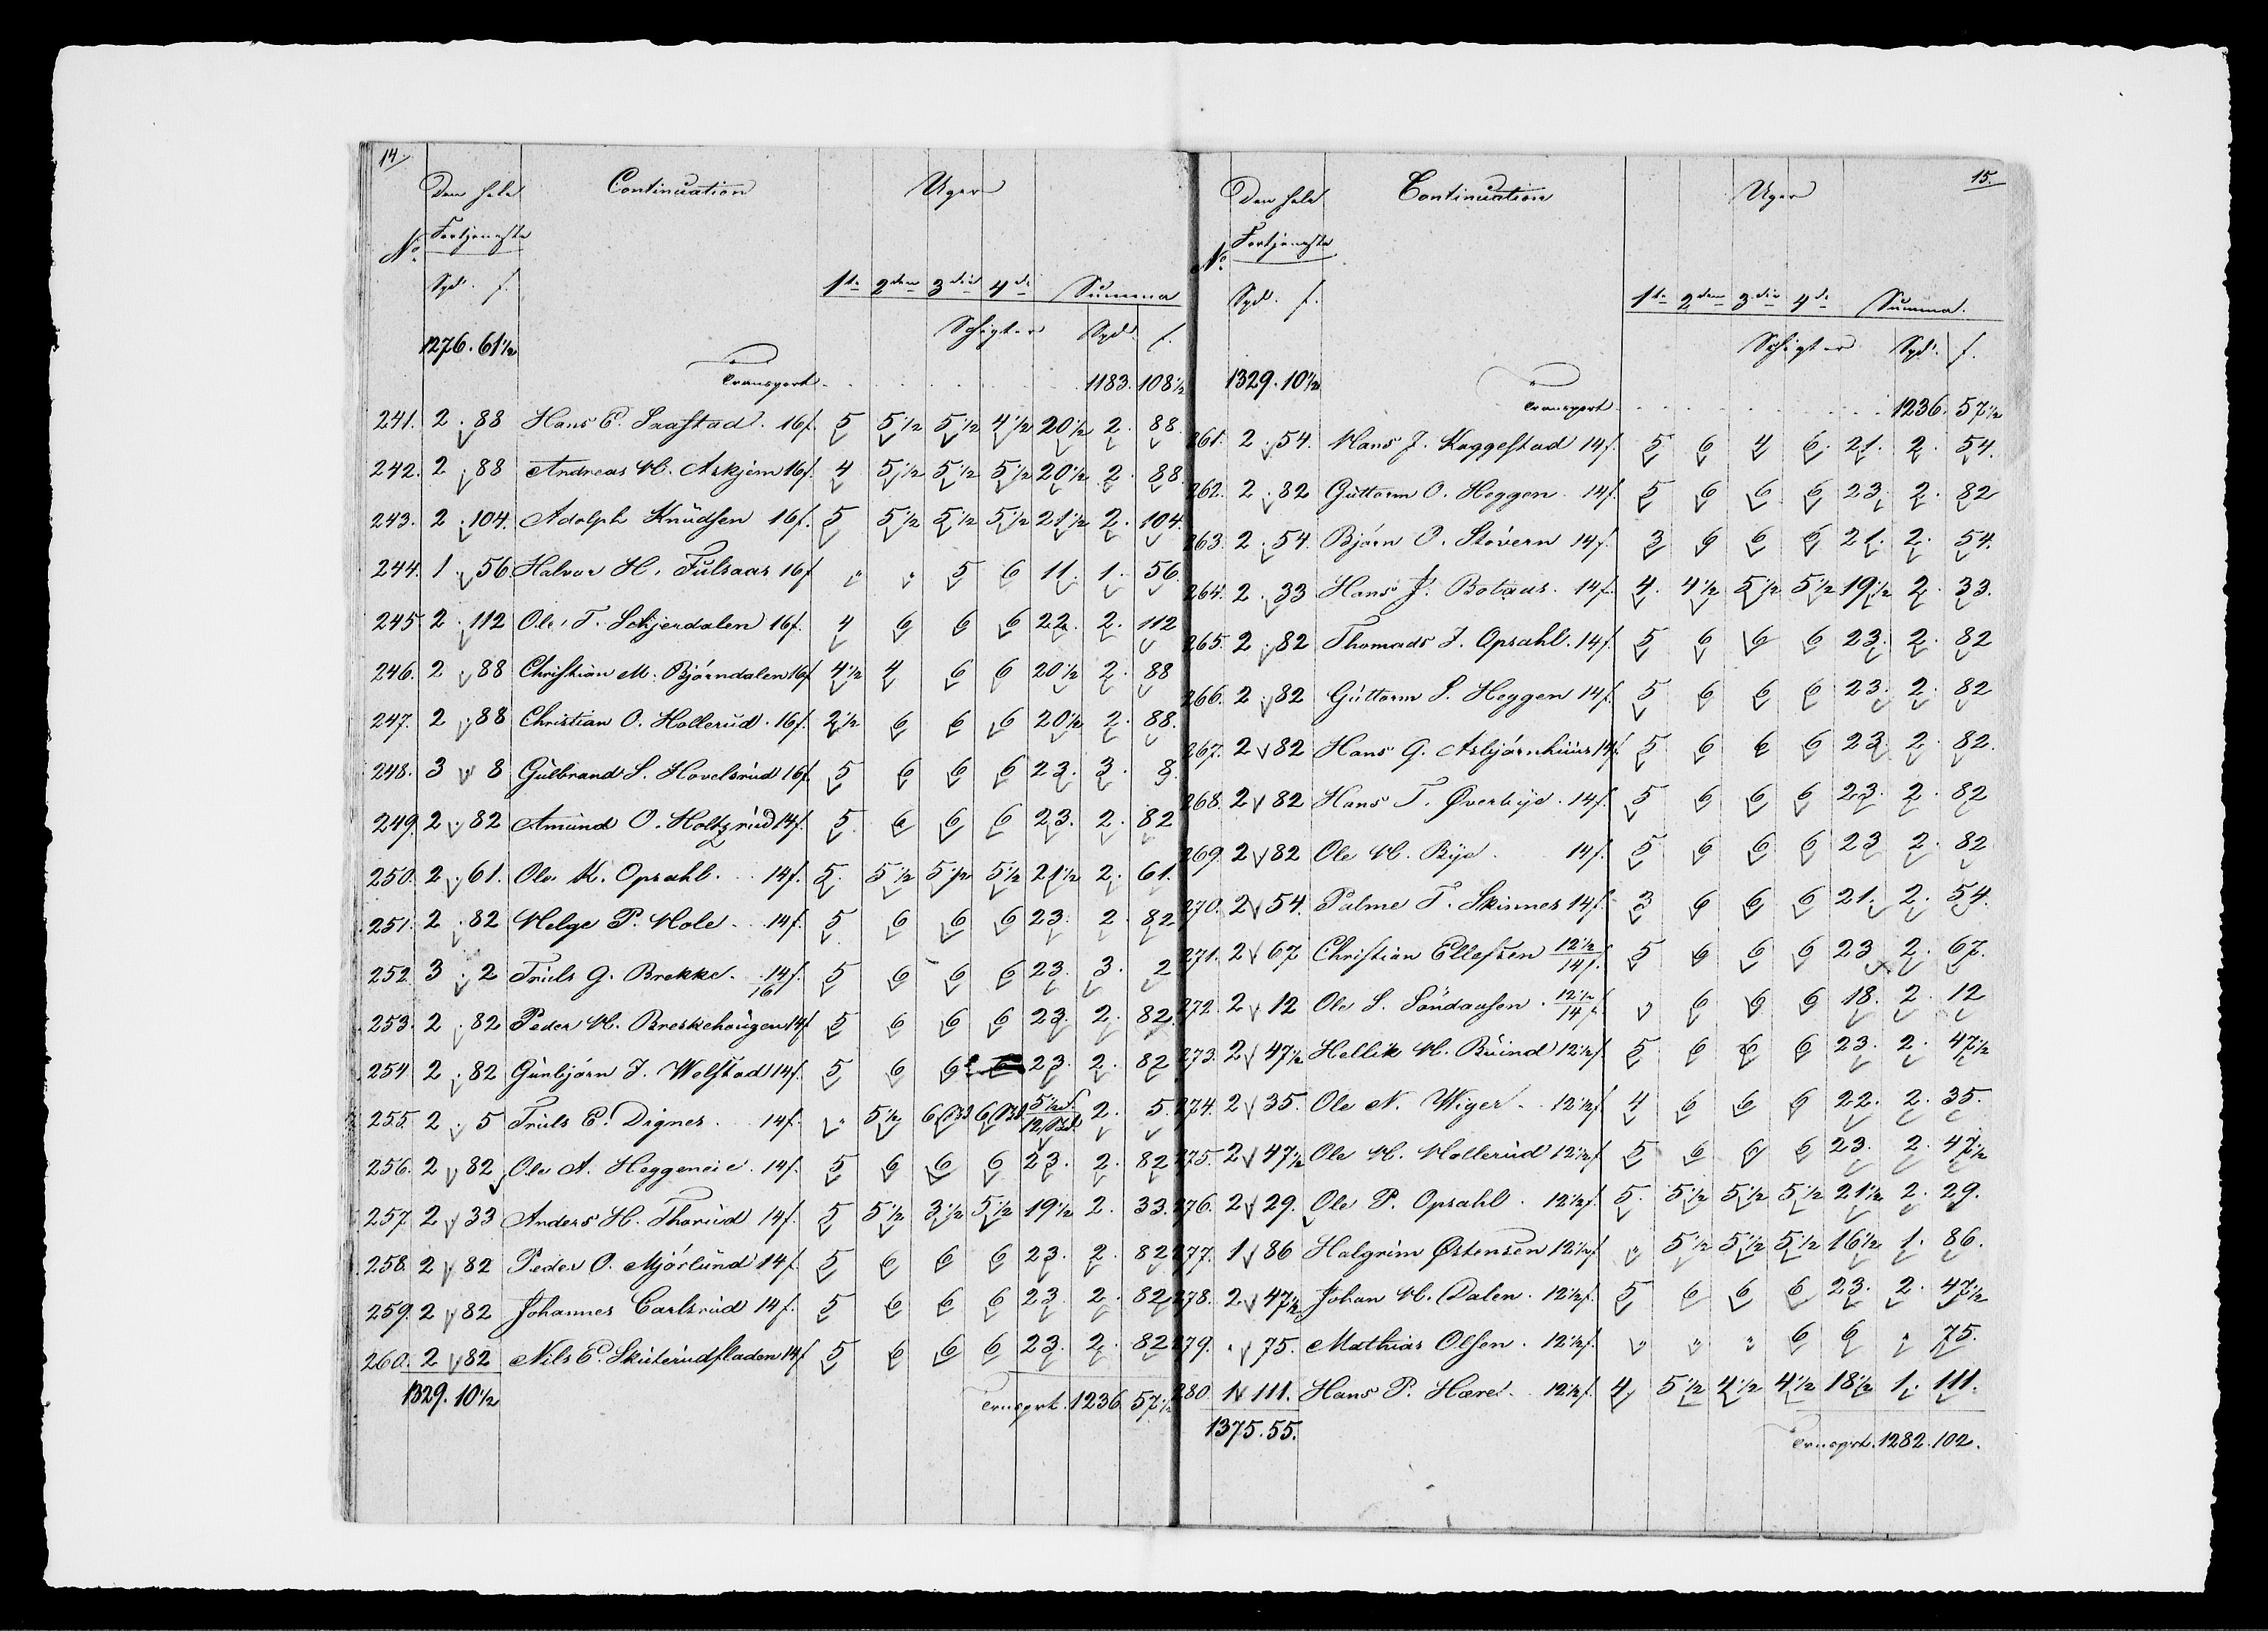 14.
Den hele Continuation Uger
No Fortjeneste
Spd. s. 1te 2den 3die 4de Summa
Schigter Spd. s.
1276. 61 1/2
Transport 1183. 108 1/2
241. 2. 88 Hans E. Saastad. 16s. 5 5 1/2 5 1/2 4 1/2 20 1/2 2. 88.
242. 2. 88 Andreas H. Askjem 16s. 4 5 1/2 5 1/2 5 1/2 20 1/2 2. 88
243. 2. 104. Adolph Knudsen 16s. 5 5 1/2 5 1/2 5 1/2 21 1/2 2. 104.
244. 1. 56 Halvor H. Fulsaas 16s " " 5 6 11. 1. 56.
245. 2. 112 Ole T. Schjerdalen 16s. 4 6 6 6 22. 2. 112
246. 2. 88 Christian M. Bjørndalen 16s 4 1/2 4 6 6 20 1/2 2. 88
247. 2. 88 Christian O. Hollerud. 16s. 2 1/2 6 6 6 20 1/2 2. 88.
248. 3 8 Gulbrand S. Hovelsrud 16s. 5 6 6 6 23. 3. 8.
249. 2. 82 Amund O. Holtzrud 14s. 5 6 6 6 23. 2. 82
250. 2. 61. Ole K. Opsahl. 14s. 5. 5 1/2 5 1/2 5 1/2 21 1/2 2. 61.
251. 2. 82 Helge P. Hole. 14s. 5 6 6 6 23. 2. 82
252. 3. 2 Truls G. Brekke. 14/16s. 5 6 6 6 23. 3. 2
253. 2. 82 Peder H. Breskehaugen 14s 5 6 6 6 23. 2. 82.
254. 2. 82 Gunbjørn J. Wefstad 14s. 5 6 6 23. 2. 82
255. 2. 5 Truls E. Dignes. 14s. " 5 1/2 6 6 5 1/2 12 2. 5.
256. 2 82 Ole A. Heggeneie. 14s. 5 6 6 6 23. 2. 82
257. 2 33 Anders H. Thorud 14s. 5 5 1/2 3 1/2 5 1/2 19 1/2 2. 33.
258. 2 82 Peder O. Mjørlund 14s. 5 6 6 6 23. 2. 82
259. 2 82 Johannes Carlsrud 14s. 5 6 6 6 23. 2. 82
260. 2 82 Nils E. Skuterudfladen 14s 5 6 6 6 23. 2. 82
1329. 10 1/2 Trnsprt. 1236 57 1/2
15.
Den hele Continuation Uger
No Fortjeneste
Spd. s. 1te 2den 3die 4de Summa.
Schigter Spd. s.
1329. 10 1/2
Transport 1236. 57 1/2
261. 2. 54. Hans J. Kaggestad 14s. 5 6 4 6. 21. 2. 54.
262. 2. 82 Guttorm O. Heggen. 14s. 5 6 6 6 23. 2. 82
263. 2. 54. Bjørn O. Støvern 14s. 3 6 6 6 21. 2. 54.
264. 2. 33 Hans J. Botaas. 14s. 4. 4 1/2 5 1/2 5 1/2 19 1/2 2. 33.
265. 2. 82 Thomads J. Opsahl. 14s. 5 6 6 6 23. 2. 82
266. 2. 82 Guttorm S. Heggen 14s. 5 6 6 6 23. 2. 82
267. 2 82 Hans G. Asbjørnhuus 14s. 5 6 6 6 23. 2. 82.
268. 2 82 Hans T. Øverbye. 14s. 5 6 6 6 23. 2. 82
269. 2 82 Ole H. Bye. 14s. 5 6 6 6 23 2. 82
270. 2 54. Palme T. Skinnes 14s. 3 6 6 6 21. 2. 54.
271. 2 67 Christian Ellefsen 12 1/2/14s. 5 6 6 6 23 2. 67.
272. 2 12 Ole S. Søndaasen. 12 1/2/14s. " 6 6 6 18. 2. 12
273. 2 47 1/2 Hellik H. Buind 12 1/2s. 5 6 6 6 23. 2. 47 1/2
274. 2 35. Ole N. Wiger. 12 1/2s 4 6 6 6 22. 2. 35.
275. 2 47 1/2 Ole H. Hollerud 12 1/2s 5 6 6 6 23. 2. 47 1/2
276. 2 29. Ole P. Opsahl. 12 1/2s. 5. 5 1/2 5 1/2 5 1/2 21 1/2 2. 29.
277. 1 86 Halgrim Østensen 12 1/2s " 5 1/2 5 1/2 5 1/2 16 1/2 1. 86.
278. 2 47 1/2 Johan H. Dalen. 12 1/2s. 5 6 6 6 23. 2. 47 1/2
279. " 75. Mathias Olsen. 12 1/2s. " " " 6 6 " 75.
280. 1 111. Hans P. Hære. 12 1/2s. 4. 5 1/2 4 1/2 4 1/2 18 1/2 1. 111.
1375. 55. Trnsprt. 1282. 102.